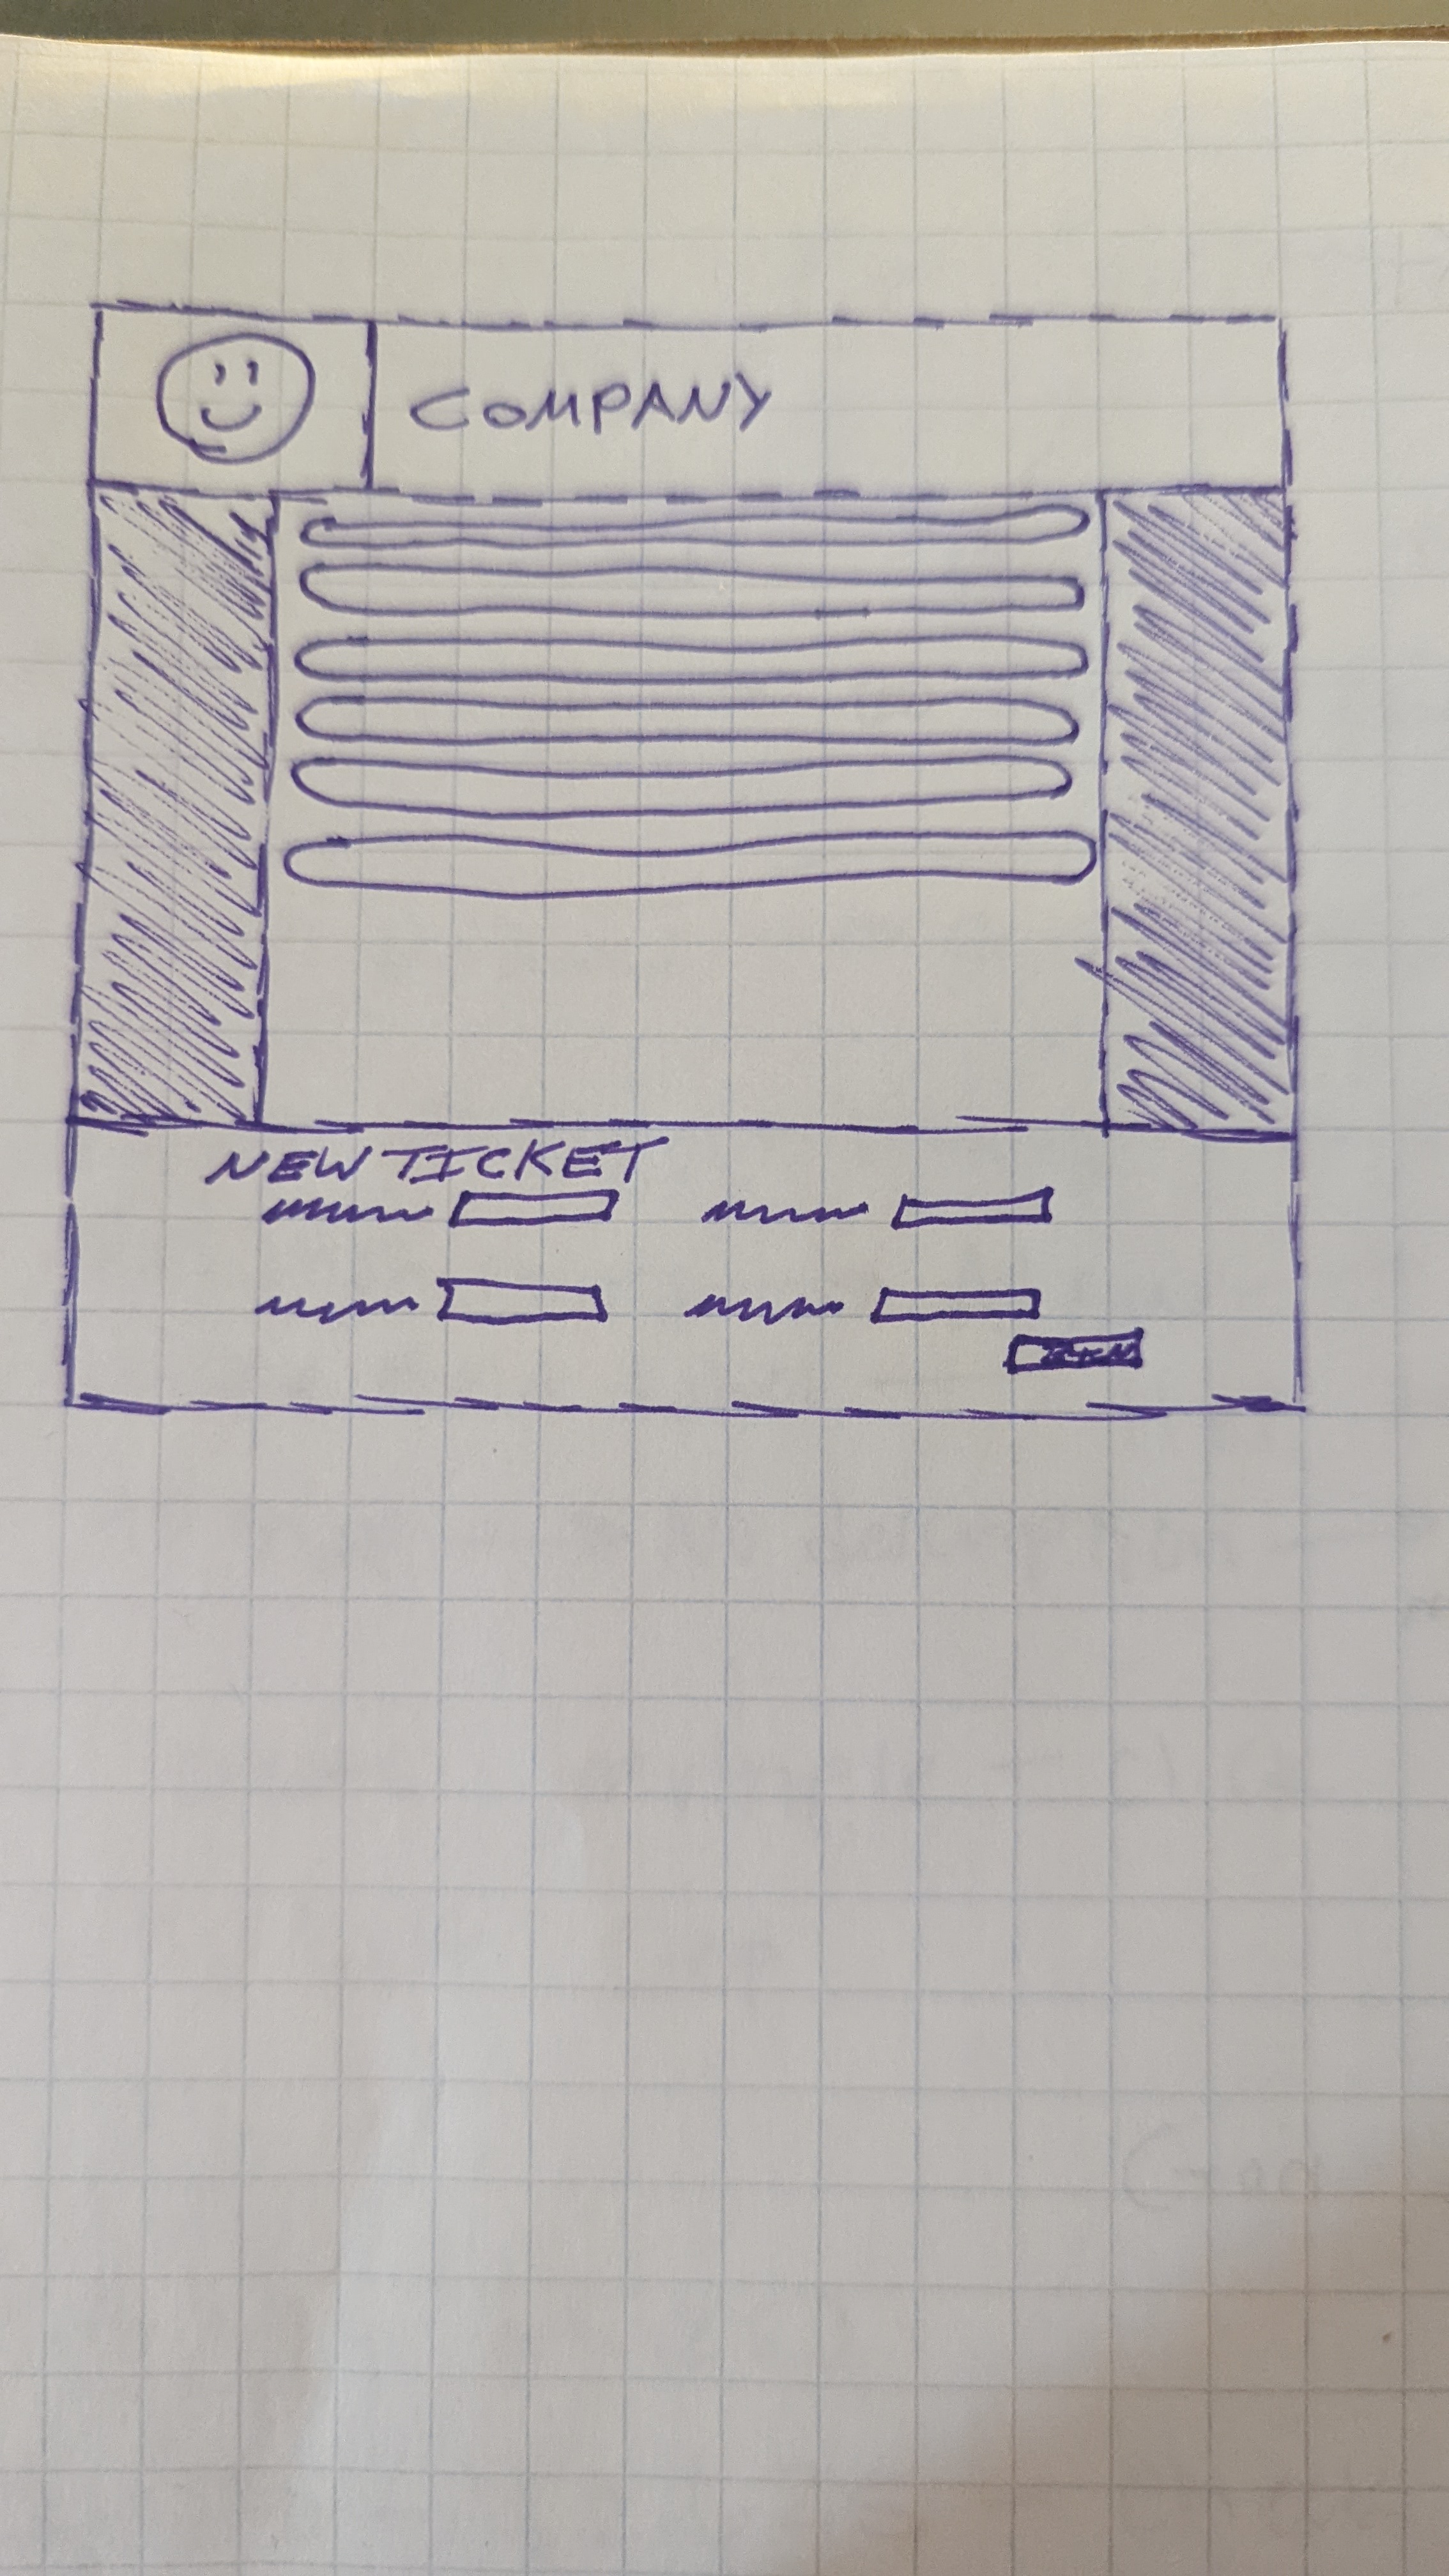 COMPANY
NEW TICKET